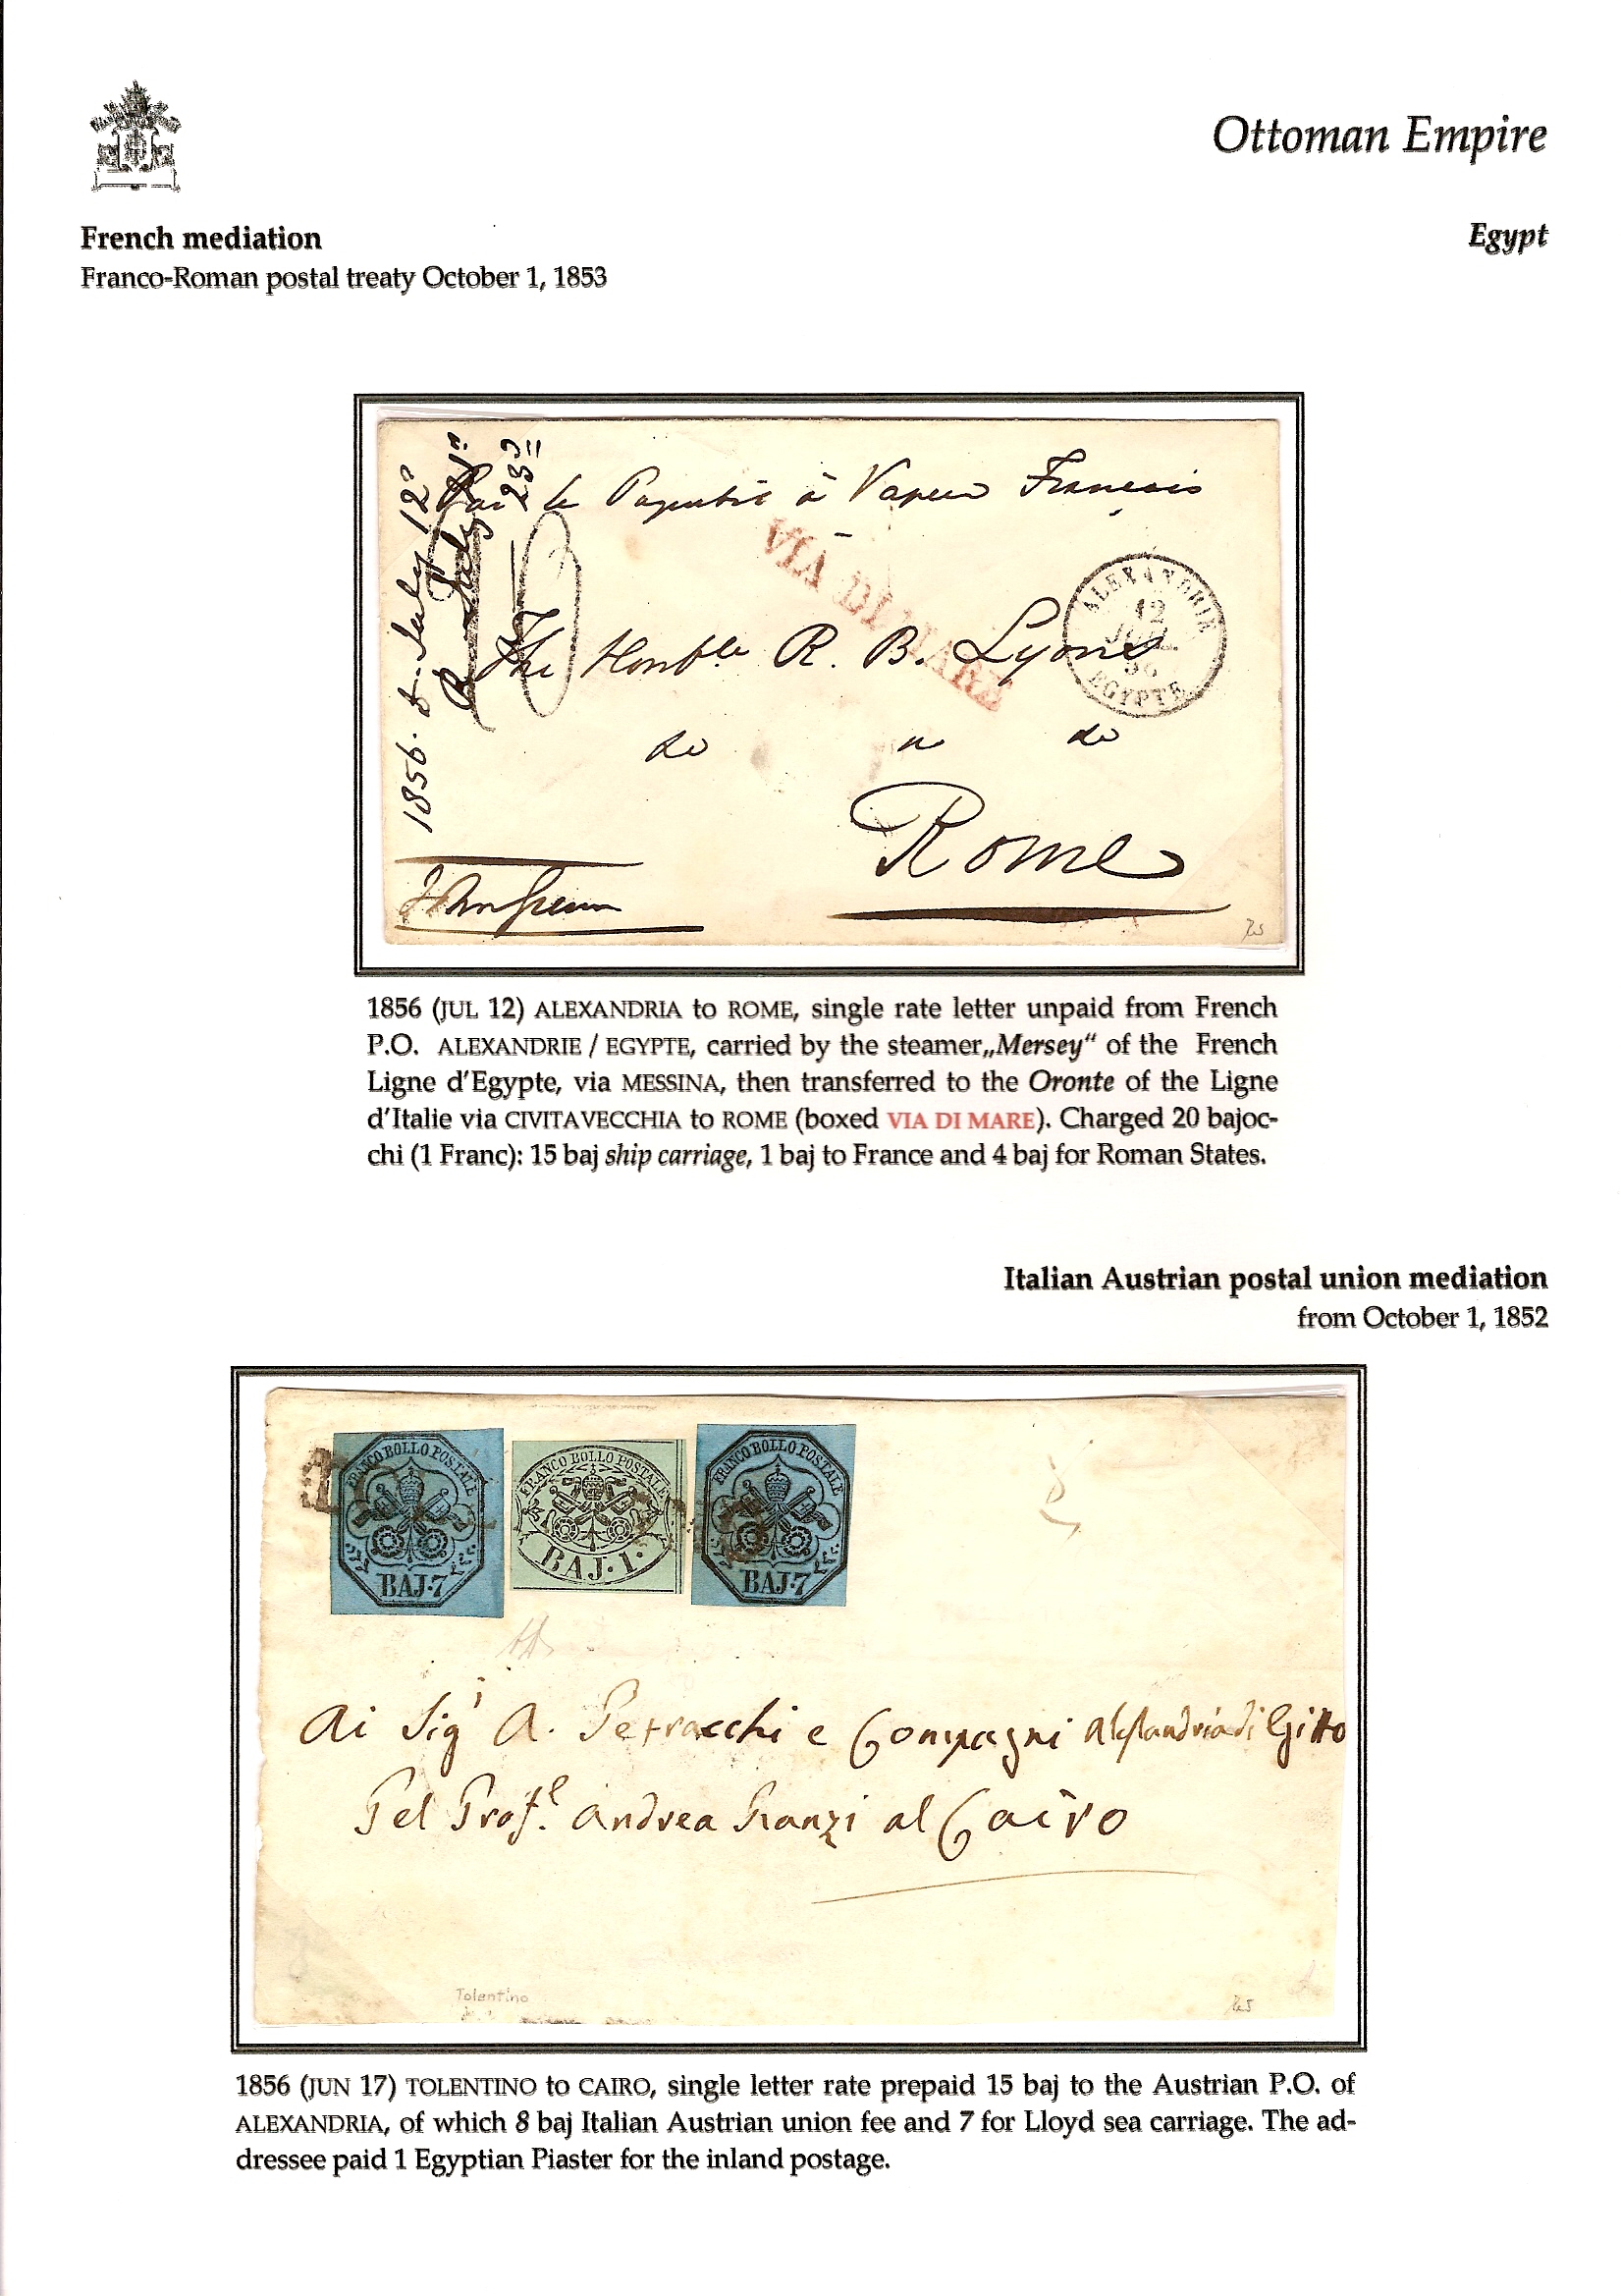 Ottoman Empire
French mediation
Egypt
Franco-Roman postal treaty October 1, 1853
1856. July 12
23
à Vapeur Francais
VIA DI MARE
ALEXANDRIE
12
JUIL.
56
EGYPTE
The Honble R. B. Lyons
Rome
1856 (JUL 12) ALEXANDRIA to ROME, single rate letter unpaid from French
P.O. ALEXANDRIE / EGYPTE, carried by the steamer„Mersey“ of the French
Ligne d'Egypte, via MESSINA, then transferred to the Oronte of the Ligne
d'Italie via CIVITAVECCHIA to ROME (boxed VIA DI MARE). Charged 20 bajoc-
chi (1 Franc): 15 baj ship carriage, 1 baj to France and 4 baj for Roman States.
Italian Austrian postal union mediation
from October 1, 1852
FRANCO BOLLO POSTALE
BAJ·7
FRANCO BOLLO POSTALE
BAJ·1·
FRANCO BOLLO POSTALE
BAJ·7
Ai Sigi A. Petracchi e Compagni Alessandria di Gitto
Pel Profe. Andrea Ranzi al Cairo
Tolentino
1856 (JUN 17) TOLENTINO to CAIRO, single letter rate prepaid 15 baj to the Austrian P.O. of
ALEXANDRIA, of which 8 baj Italian Austrian union fee and 7 for Lloyd sea carriage. The ad-
dressee paid 1 Egyptian Piaster for the inland postage.